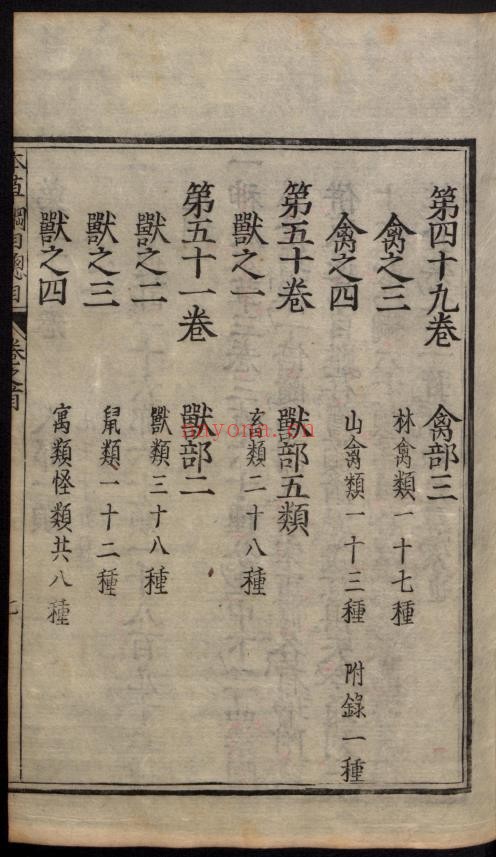 第四十九卷 禽部三
禽之三 林禽類一十七種
禽之四 山禽類一十三種 附錄一種
第五十卷 獸部五類
獸之一 畜類二十八種
第五十一卷 獸部二
獸之二 獸類三十八種
獸之三 鼠類一十二種
獸之四 寓類怪類共八種
本草綱目總目 卷之首 七